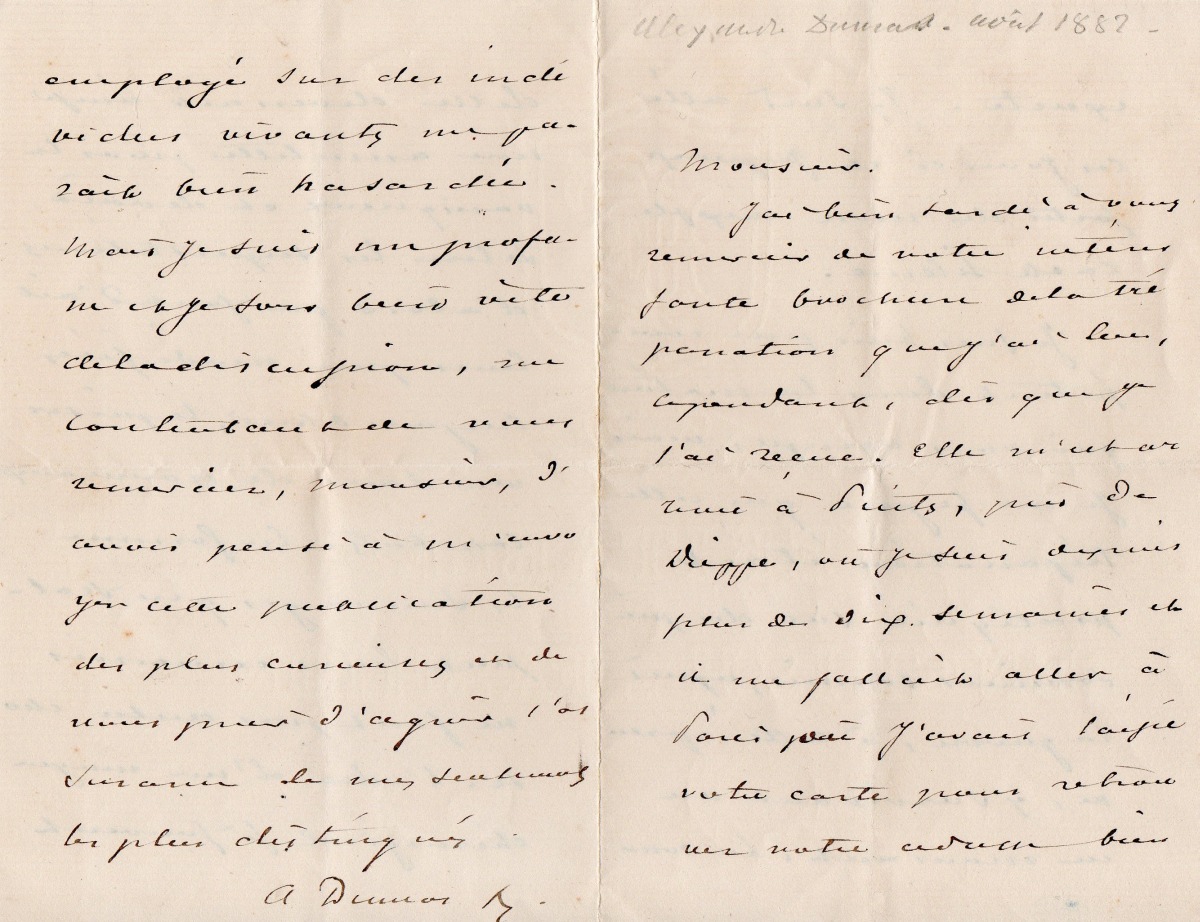 Alexandre Dumas. août 1882 -
Monsieur.
J'ai bien tardé à vous
remercier de votre intéres
sante brochure de la tré
panation que j'ai lue,
cependant, dès que je
l'ai reçue. Elle m'est ar
rivée à Puits, près de
Dieppe, où je suis depuis
plus de dix semaines et
il me fallait aller à
Paris où j'avais laissé
votre carte pour retrou
ver votre adresse bien
employé sur des indi
vidus vivants me pa-
rait bien hasardée.
Mais je suis un profa-
ne et je sors bien vite
de la discussion, me
contentant de vous
remercier, monsieur, d'
avoir pensé à m'envo
yer cette publication
des plus curieuses et de
vous prier d'agréer l'as
surance de mes sentiments
les plus distingués
A Dumas f.